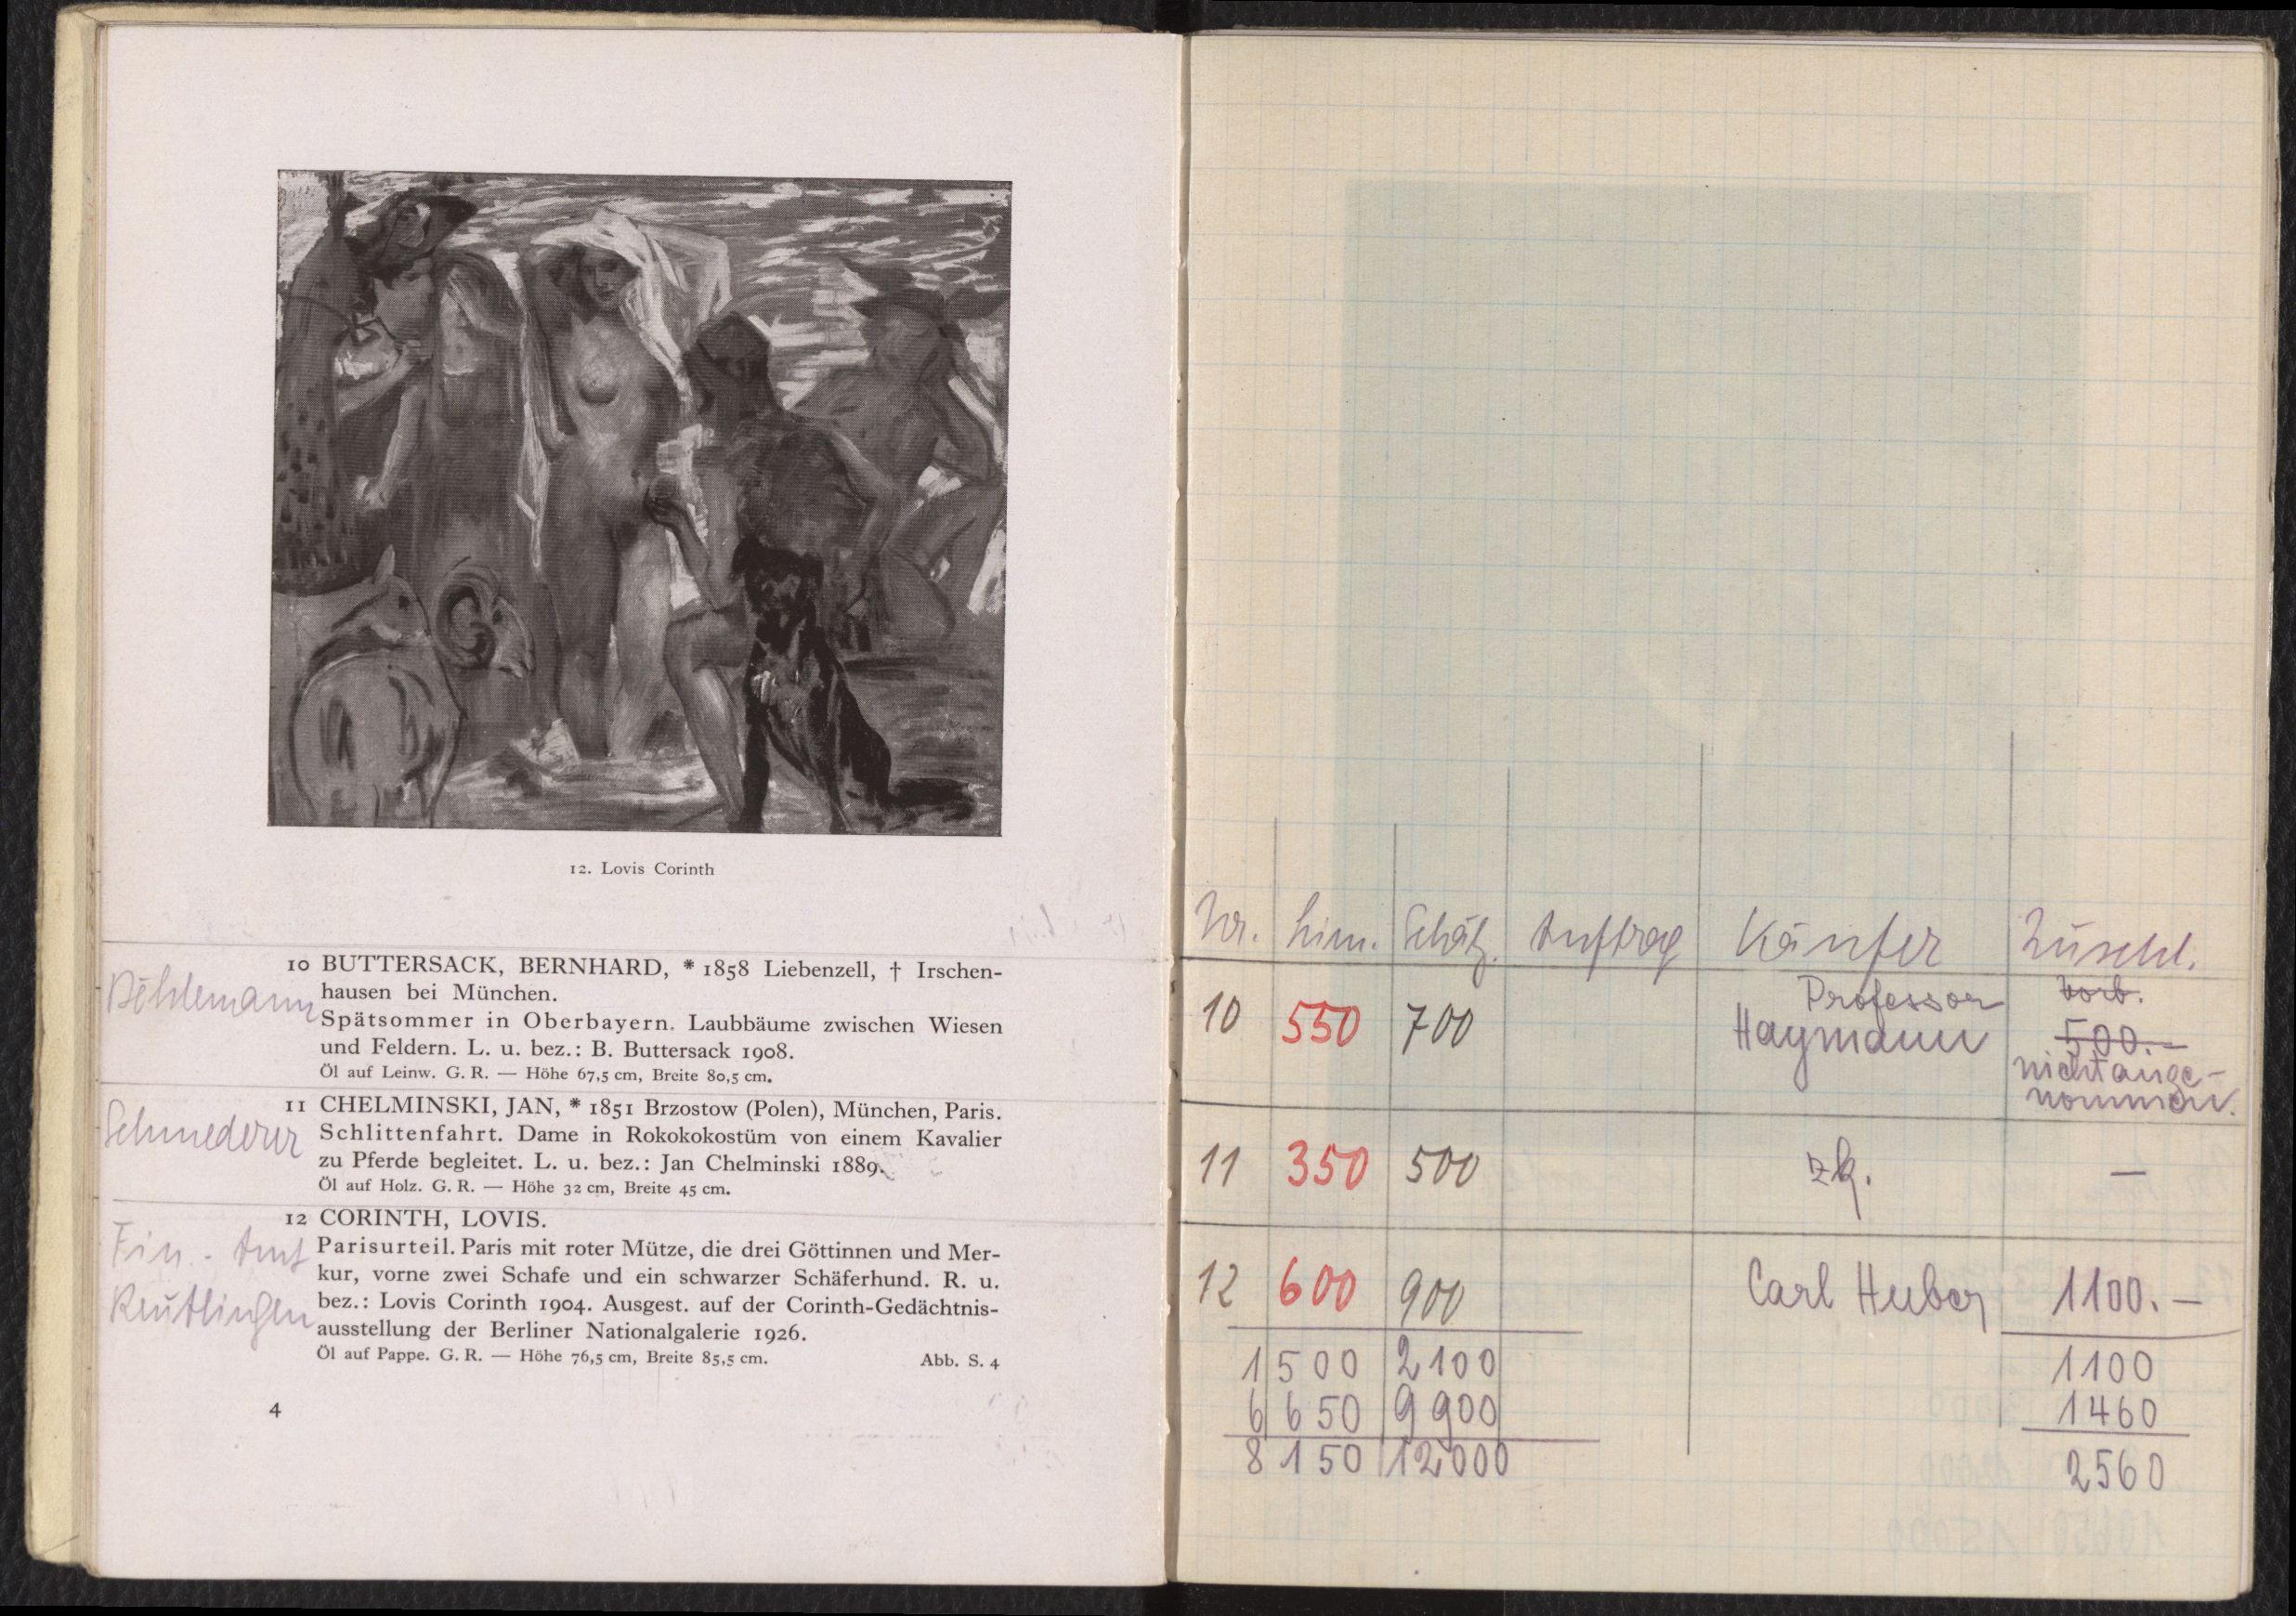 12. Lovis Corinth
10 BUTTERSACK, BERNHARD, * 1858 Liebenzell, † Irschen-
hausen bei München.
Spätsommer in Oberbayern. Laubbäume zwischen Wiesen
und Feldern. L. u. bez.: B. Buttersack 1908.
Öl auf Leinw. G. R. — Höhe 67,5 cm, Breite 80,5 cm.
Schmederer
11 CHELMINSKI, JAN, * 1851 Brzostow (Polen), München, Paris.
Schlittenfahrt. Dame in Rokokokostüm von einem Kavalier
zu Pferde begleitet. L. u. bez.: Jan Chelminski 1889.
Öl auf Holz. G. R. — Höhe 32 cm, Breite 45 cm.
Fin.-Amt
Reutlingen
12 CORINTH, LOVIS.
Parisurteil. Paris mit roter Mütze, die drei Göttinnen und Mer-
kur, vorne zwei Schafe und ein schwarzer Schäferhund. R. u.
bez.: Lovis Corinth 1904. Ausgest. auf der Corinth-Gedächtnis-
ausstellung der Berliner Nationalgalerie 1926.
Öl auf Pappe. G. R. — Höhe 76,5 cm, Breite 85,5 cm. Abb. S. 4
4
Nr. Lim. Schätz. Auftrag Käufer Zuschl.
10 550 700 Professor Haymann vorb. 500.—
nicht ange-
nommen.
11 350 500 zk. —
12 600 900 Carl Huber 1100.—
1500 2100 1100
6650 9900 1460
8150 12000 2560